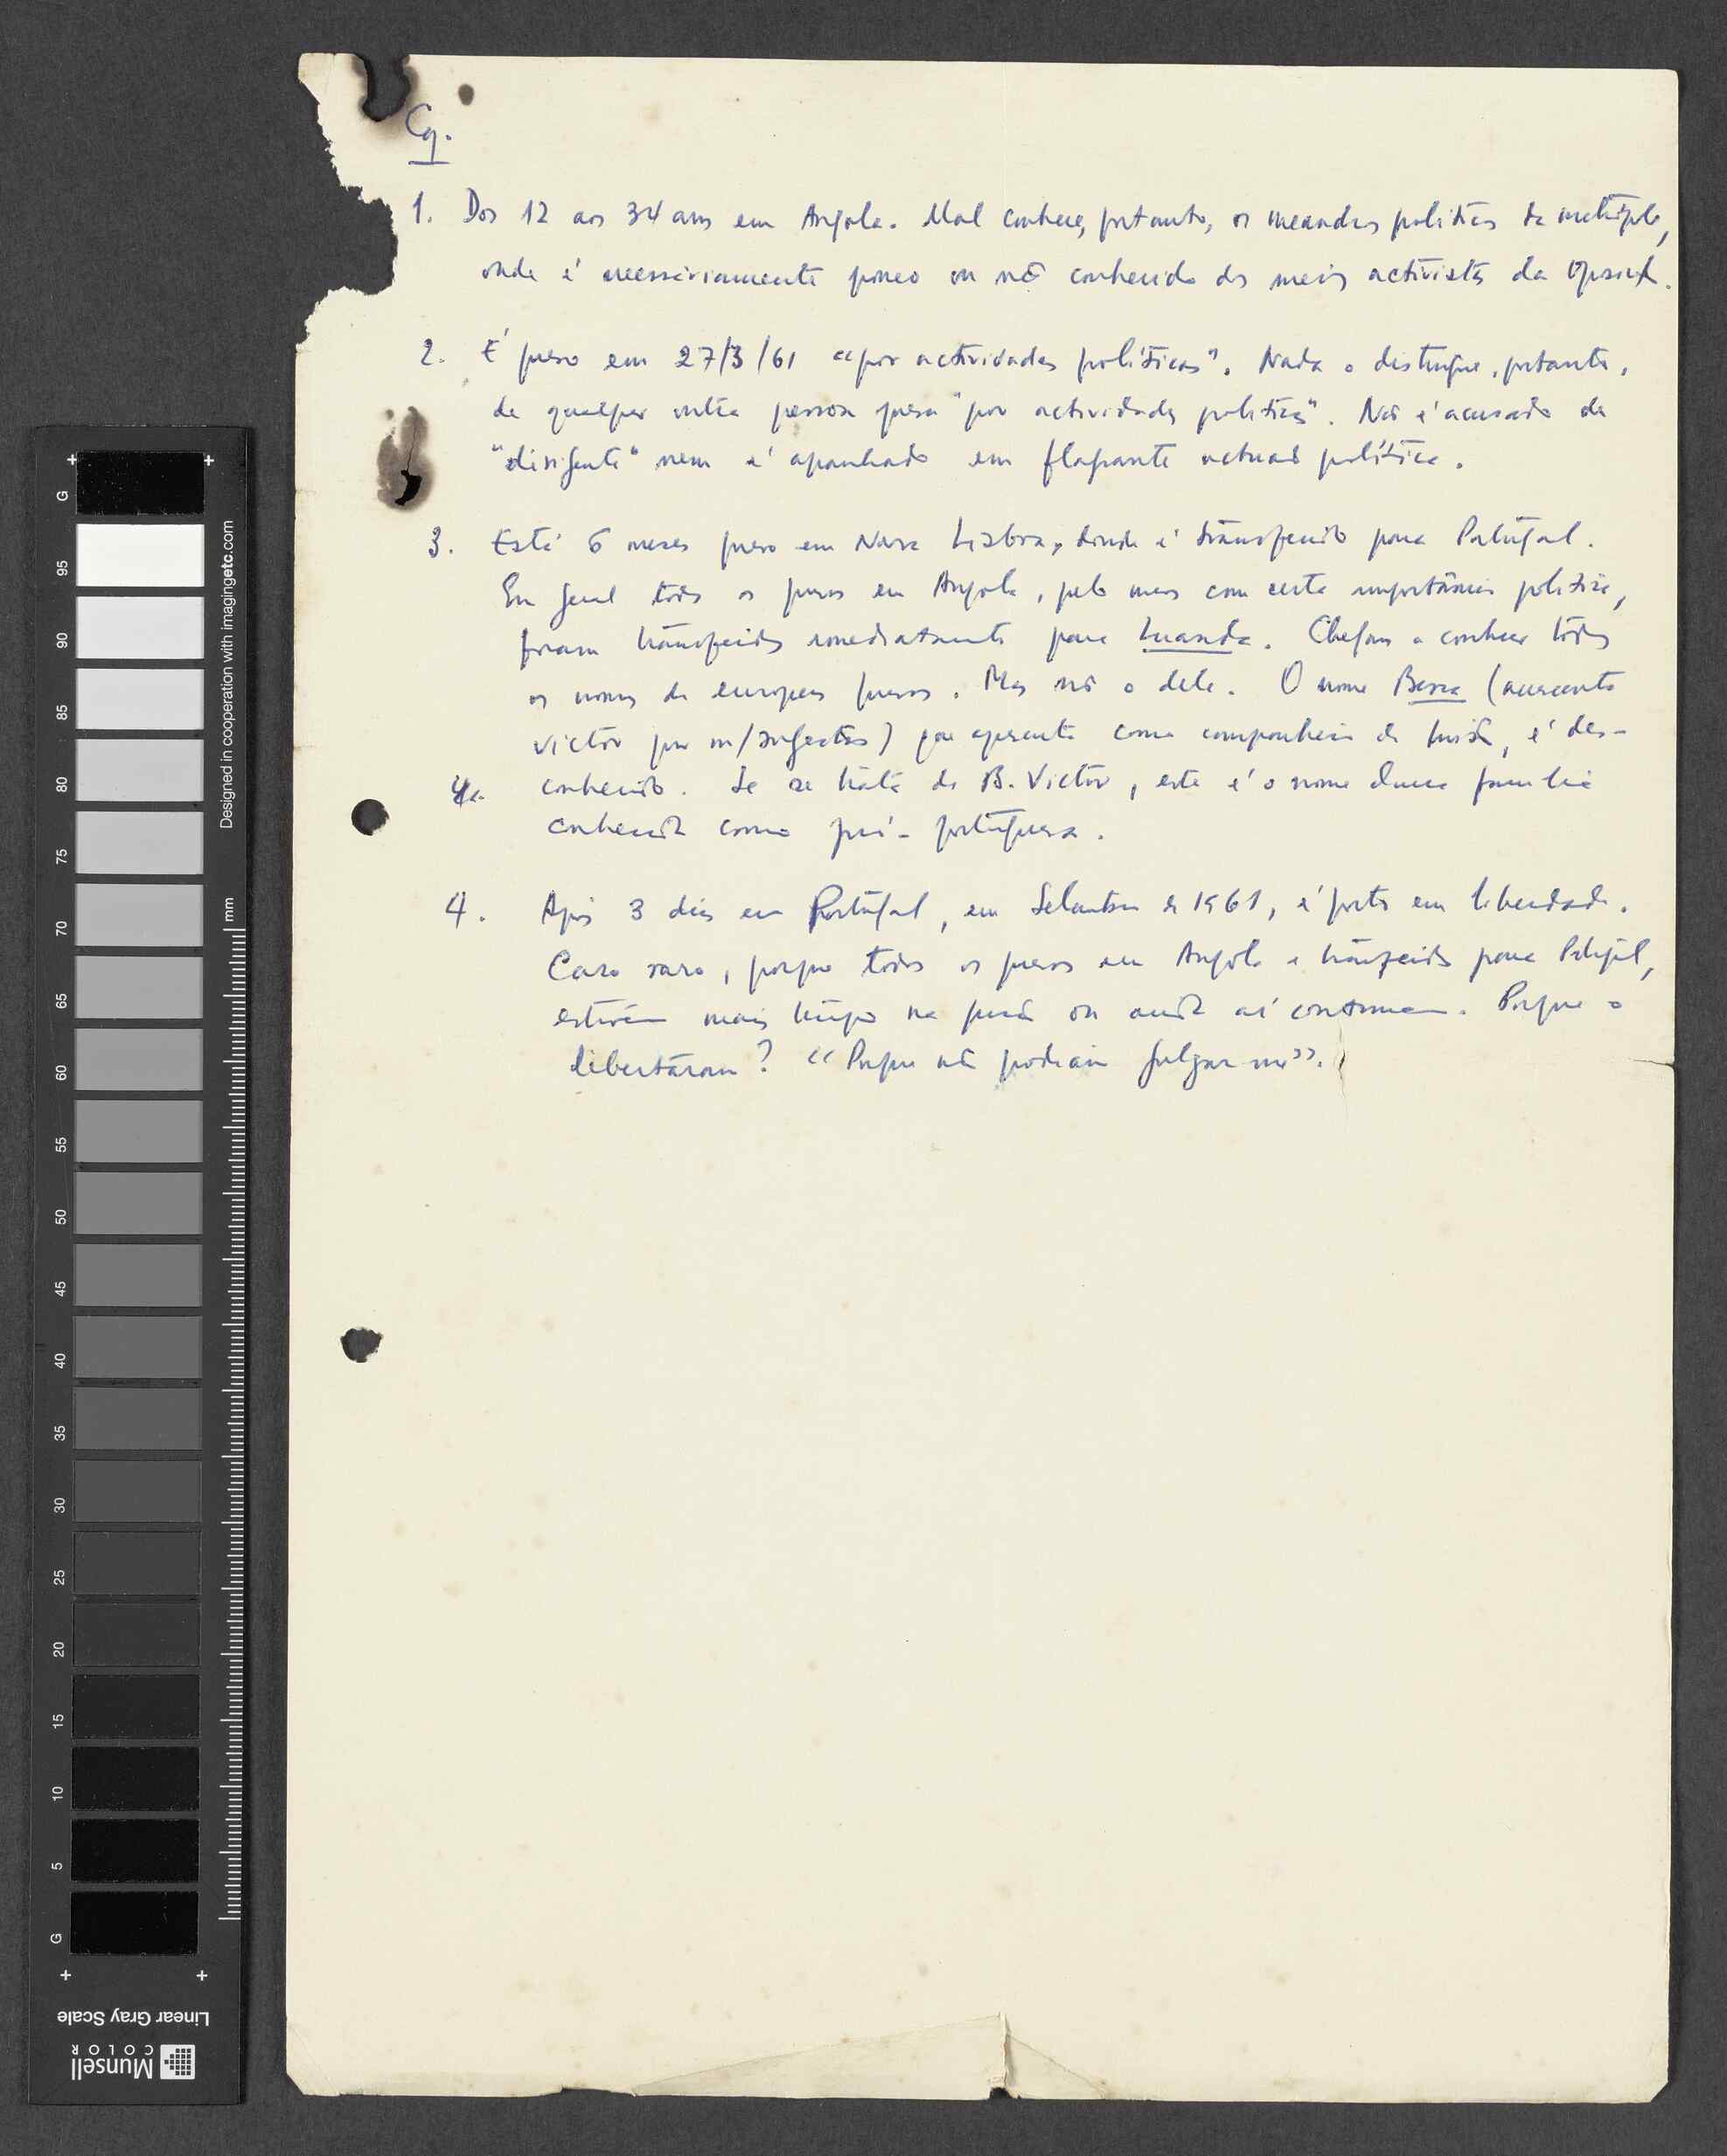 Cq.
1. Dos 12 aos 34 anos em Angola. Mal conhece, portanto, os meandros politicos da metrópole,
onde é necessariamente pouco ou não conhecido dos meios activistas da Oposição.
2. É preso em 27/3/61 "por actividades políticas". Nada o distingue, portanto,
de qualquer outra pessoa presa "por actividades politicas". Não é acusado de
"dirigente" nem é apanhado em flagrante actuação política.
3. Está 6 meses preso em Nova Lisboa, donde é transferido para Portugal.
Em geral todos os presos em Angola, pelo menos com certa importância politica,
foram transferidos imediatamente para Luanda. Chegam a conhecer todos
os nomes de europeus presos. Mas não o dele. O nome Bessa (acrescenta
Victor por m/sugestão) que apresenta como companheiro de prisão, é des-
conhecido. Se se trata de B. Victor, este é o nome duma familia
conhecida como pró-portuguesa.
4. Após 3 dias em Portugal, em Setembro de 1961, é posto em liberdade.
Caso raro, porque todos os presos em Angola e transferidos para Portugal,
estiveram mais tempo na prisão ou ainda aí continuam. Porque o
libertaram? "Porque não podiam julgar-me".
Designed in cooperation with imagingetc.com
mm
G
95
90
85
80
75
70
65
60
55
50
45
40
35
30
25
20
15
10
5
G
Linear Gray Scale
Munsell
COLOR